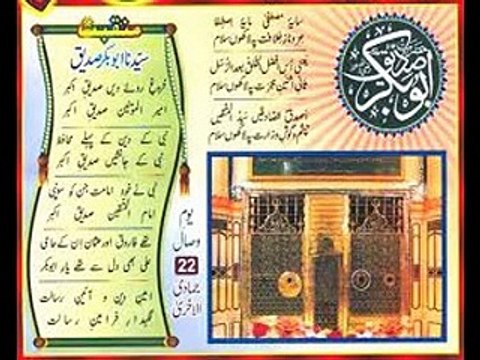 منقبت
سیّدنا ابوبکر صدیق
فروغ روئے دیں صدیق اکبر
امیر المومنین صدیق اکبر
نبی کے دین کے پہلے محافظ
نبی کے جانشیں صدیق اکبر
نبی نے خود امامت جن کو سونپی
امام المتقین صدیق اکبر
تھے فاروق اور عثمان ان کے حامی
علی بھی دل سے تھے یار ابوبکر
امین دین و آئین رسالت
نگہدار فرامین رسالت
سایۂ مصطفیٰ مایۂ اصطفا
عز و ناز خلافت پہ لاکھوں سلام
یعنی اس افضل الخلق بعد الرسل
ثانی اثنین ہجرت پہ لاکھوں سلام
اصدق الصادقین سید المتقین
چشم و گوش وزارت پہ لاکھوں سلام
ابوبکر صدیق
یوم
وصال
22
جمادی
الاخریٰ